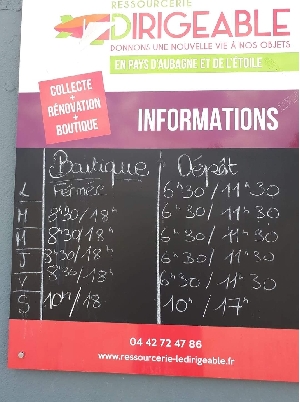 RESSOURCERIE
DIRIGEABLE
DONNONS UNE NOUVELLE VIE À NOS OBJETS
EN PAYS D'AUBAGNE ET DE L'ÉTOILE
COLLECTE
+
RÉNOVATION
+
BOUTIQUE
INFORMATIONS
Boutique Dépôt
L Fermés 6h30/11h30
M 8h30/18h 6h30/11h30
M 8h30/18h 6h30/11h30
J 8h30/18h 6h30/11h30
V 8h30/18h 6h30/11h30
S 10h/18 10h/17h
04 42 72 47 86
www.ressourcerie-ledirigeable.fr